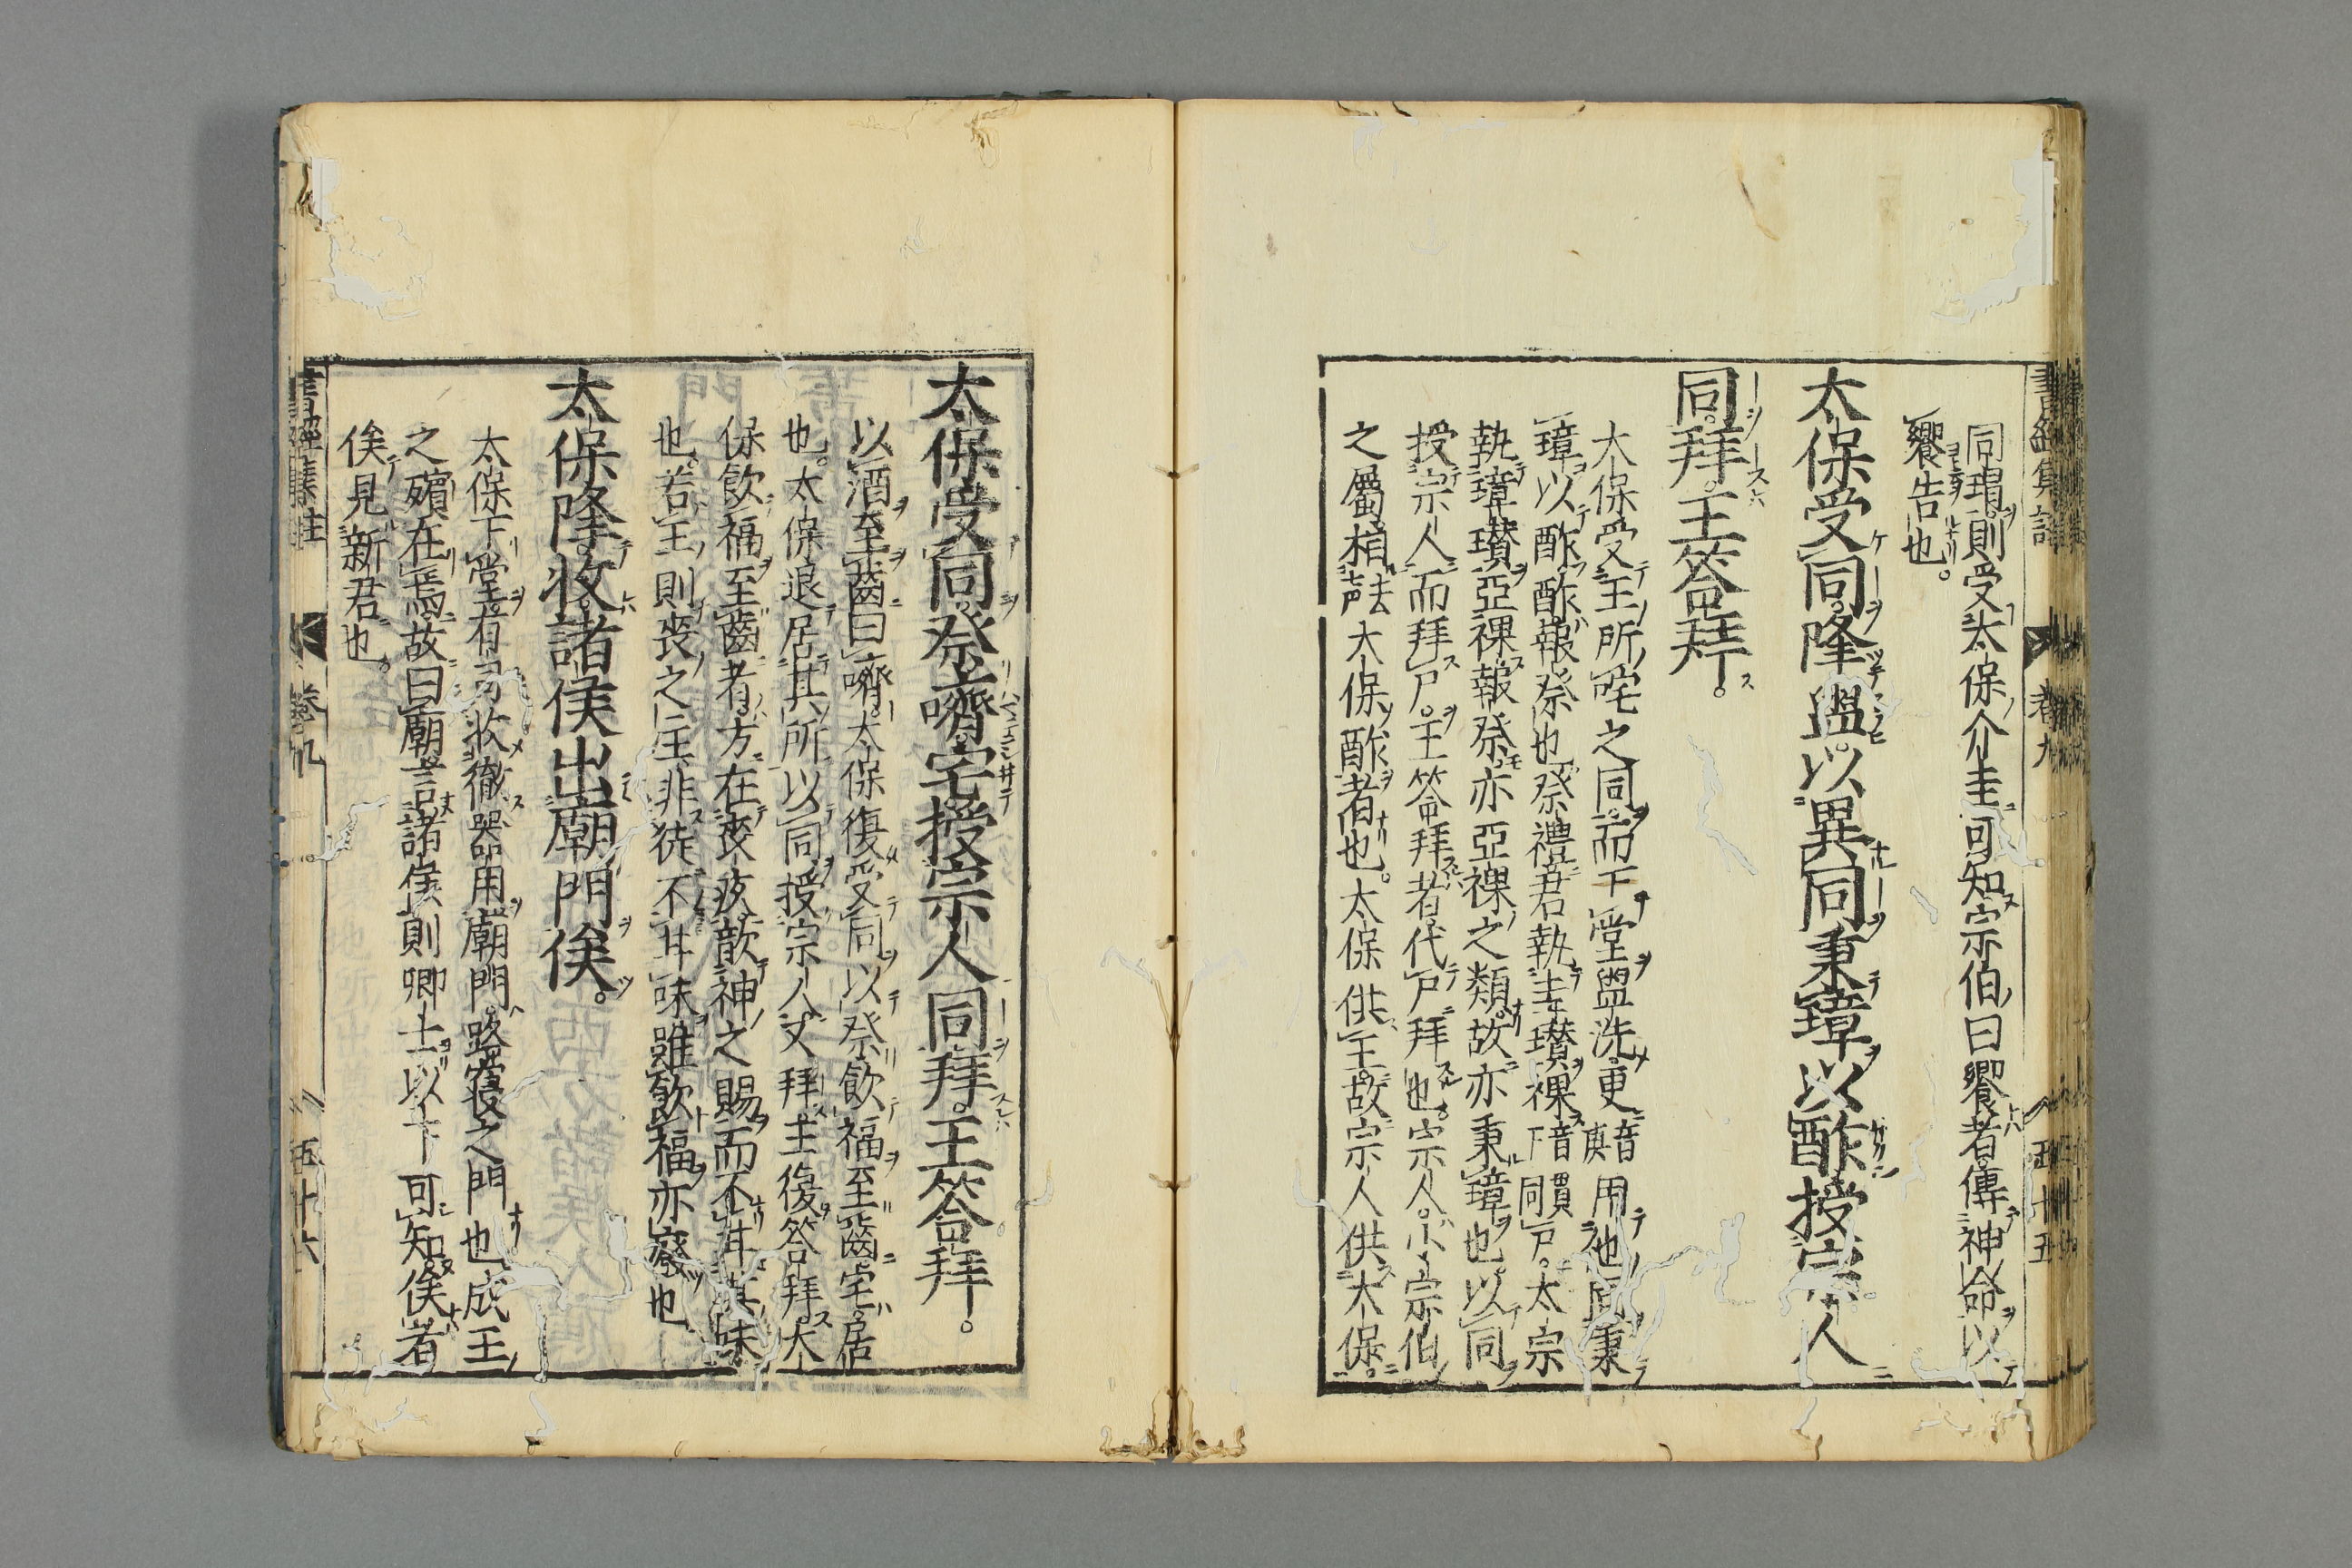 同瑁則受太保介圭可知宗伯曰饗者傳神命以
饗告也。
太保受同降盥以異同秉璋以酢授宗人
同拜王答拜。
太保受王所咤之同而下堂盥洗更音庚用他同秉
璋以酢酢報祭也祭禮君執圭瓚祼音慣下同尸太宗
執璋瓚亞祼報祭亦亞祼之類故亦秉璋也以同
授宗人而拜尸王答拜者代尸拜也宗人小宗伯
之屬相去声太保酢者也。太保供王故宗人供太保。
太保受同祭嚌宅授宗人同拜王答拜。
以酒至齒曰嚌。太保復受同以祭飲福至齒宅居
也。太保退居其所以同授宗人又拜王復答拜太
保飲福至齒者方在喪疚歆神之賜而不甘其味
也。若王則喪之主非徒不甘味雖飲福亦廢也
太保降收諸侯出廟門俟。
太保下堂有司收徹器用廟門路寢之門也成王
之殯在焉故曰廟言諸侯則卿士以下可知俟者
俟見新君也。
書經集註 卷九 五十五
書經集註 卷九 五十六